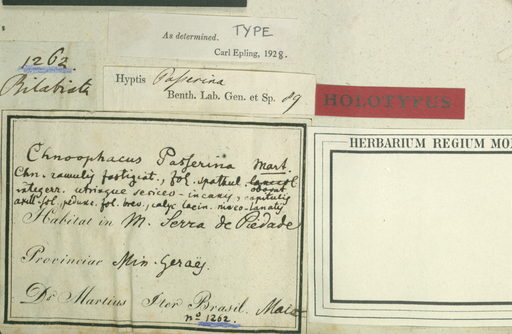 TYPE
As determined.
Carl Epling, 1928.
1262.
Bilabiata
Hyptis Passerina
Benth. Lab. Gen. et Sp. 89
HOLOTYPUS
Chnoophacus Passerina Mart.
Chn. ramulis fastigiat., fol. spathul. lanceol.
obovat.
integerr. utrinque sericeo-incanis, capitulis
axill. fol. , calyc. lacin. niveo-lanatis
Habitat in M. Serra de Piedade
Provinciae Min. Geraës.
Dr. Martius Iter Brasil. Maio
no 1262.
HERBARIUM REGIUM MO